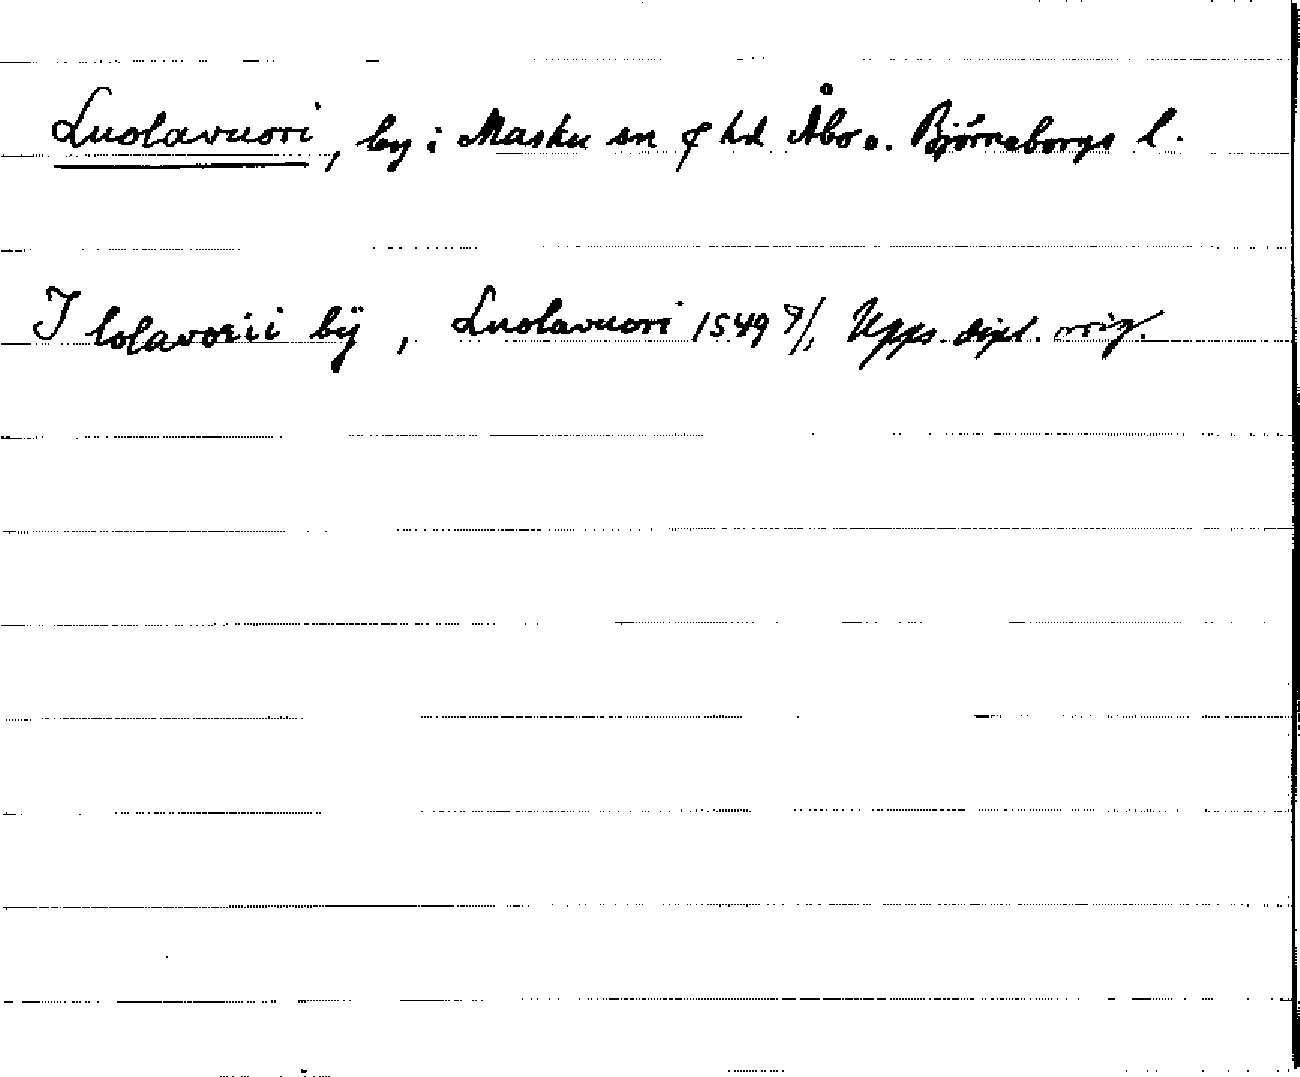 Luolavuori, by i Masku sn o hd Åbo o. Björneborgs l.
I lolavorii bÿ, Luolavuori 1549 7/1, Upps. dipl. orig.